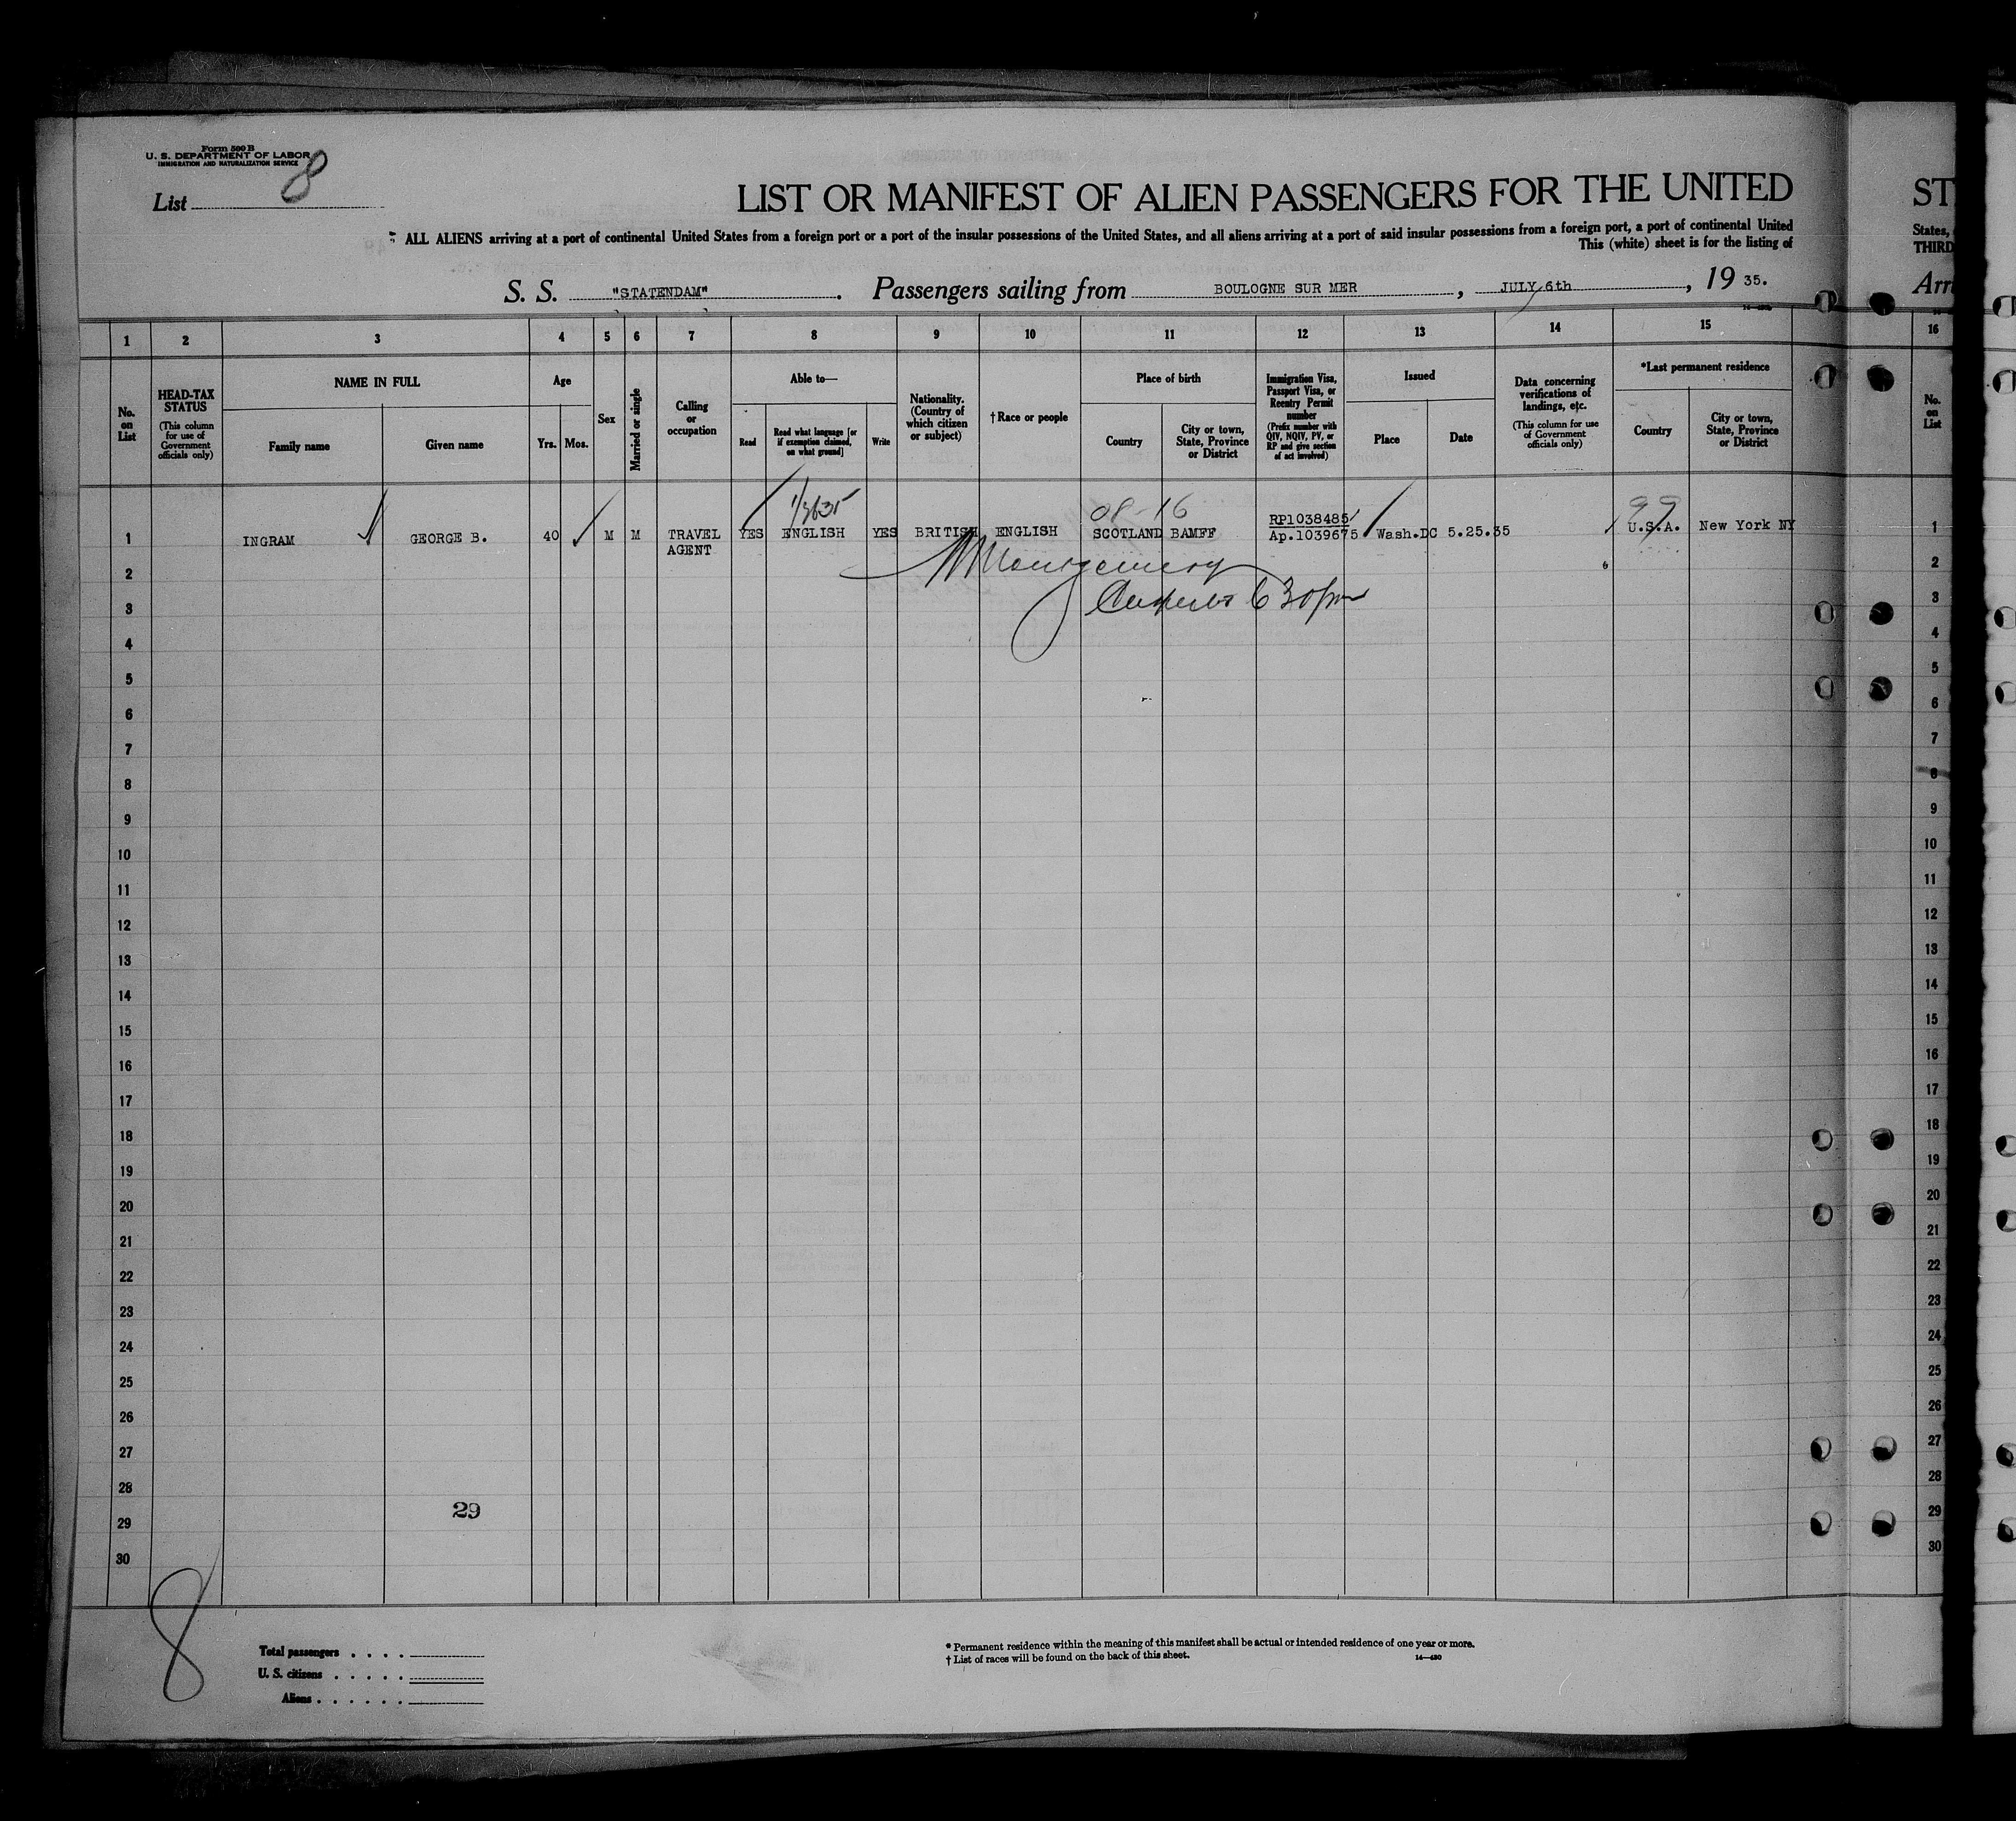 Form 500 B
U. S. DEPARTMENT OF LABOR
IMMIGRATION AND NATURALIZATION SERVICE
List 8
LIST OR MANIFEST OF ALIEN PASSENGERS FOR THE UNITED
ALL ALIENS arriving at a port of continental United States from a foreign port or a port of the insular possessions of the United States, and all aliens arriving at a port of said insular possessions from a foreign port, a port of continental United
This (white) sheet is for the listing of
S. S. "STATENDAM". Passengers sailing from BOULOGNE SUR MER, JULY 6th, 19 35.
ST
States,
THIRD
Arri
1 2 3 4 5 6 7 8 9 10 11 12 13 14 15 16
No. on List
HEAD-TAX STATUS
(This column for use of Government officials only)
NAME IN FULL
Family name
Given name
Age
Yrs. Mos.
Sex
Married or single
Calling or occupation
Able to—
Read
Read what language [or if exemption claimed, on what ground]
Write
Nationality. (Country of which citizen or subject)
†Race or people
Place of birth
Country
City or town, State, Province or District
Immigration Visa, Passport Visa, or Reentry Permit number
(Prefix number with QIV, NQIV, PV, or RP and give section of act involved)
Issued
Place
Date
Data concerning verifications of landings, etc.
(This column for use of Government officials only)
*Last permanent residence
Country
City or town, State, Province or District
No. on List
08-16
99
RP1038485
1 INGRAM GEORGE B. 40 M M TRAVEL YES ENGLISH YES BRITISH ENGLISH SCOTLAND BAMFF Ap.1039675 Wash.DC 5.25.35 U.S.A. New York NY 1
AGENT
Montgomery
6 30 pm
2 2
3 3
4 4
5 5
6 6
7 7
8 8
9 9
10 10
11 11
12 12
13 13
14 14
15 15
16 16
17 17
18 18
19 19
20 20
21 21
22 22
23 23
24 24
25 25
26 26
27 27
28 28
29
29 29
30 30
8
Total passengers
U. S. citizens
Aliens
* Permanent residence within the meaning of this manifest shall be actual or intended residence of one year or more.
† List of races will be found on the back of this sheet.
14—430